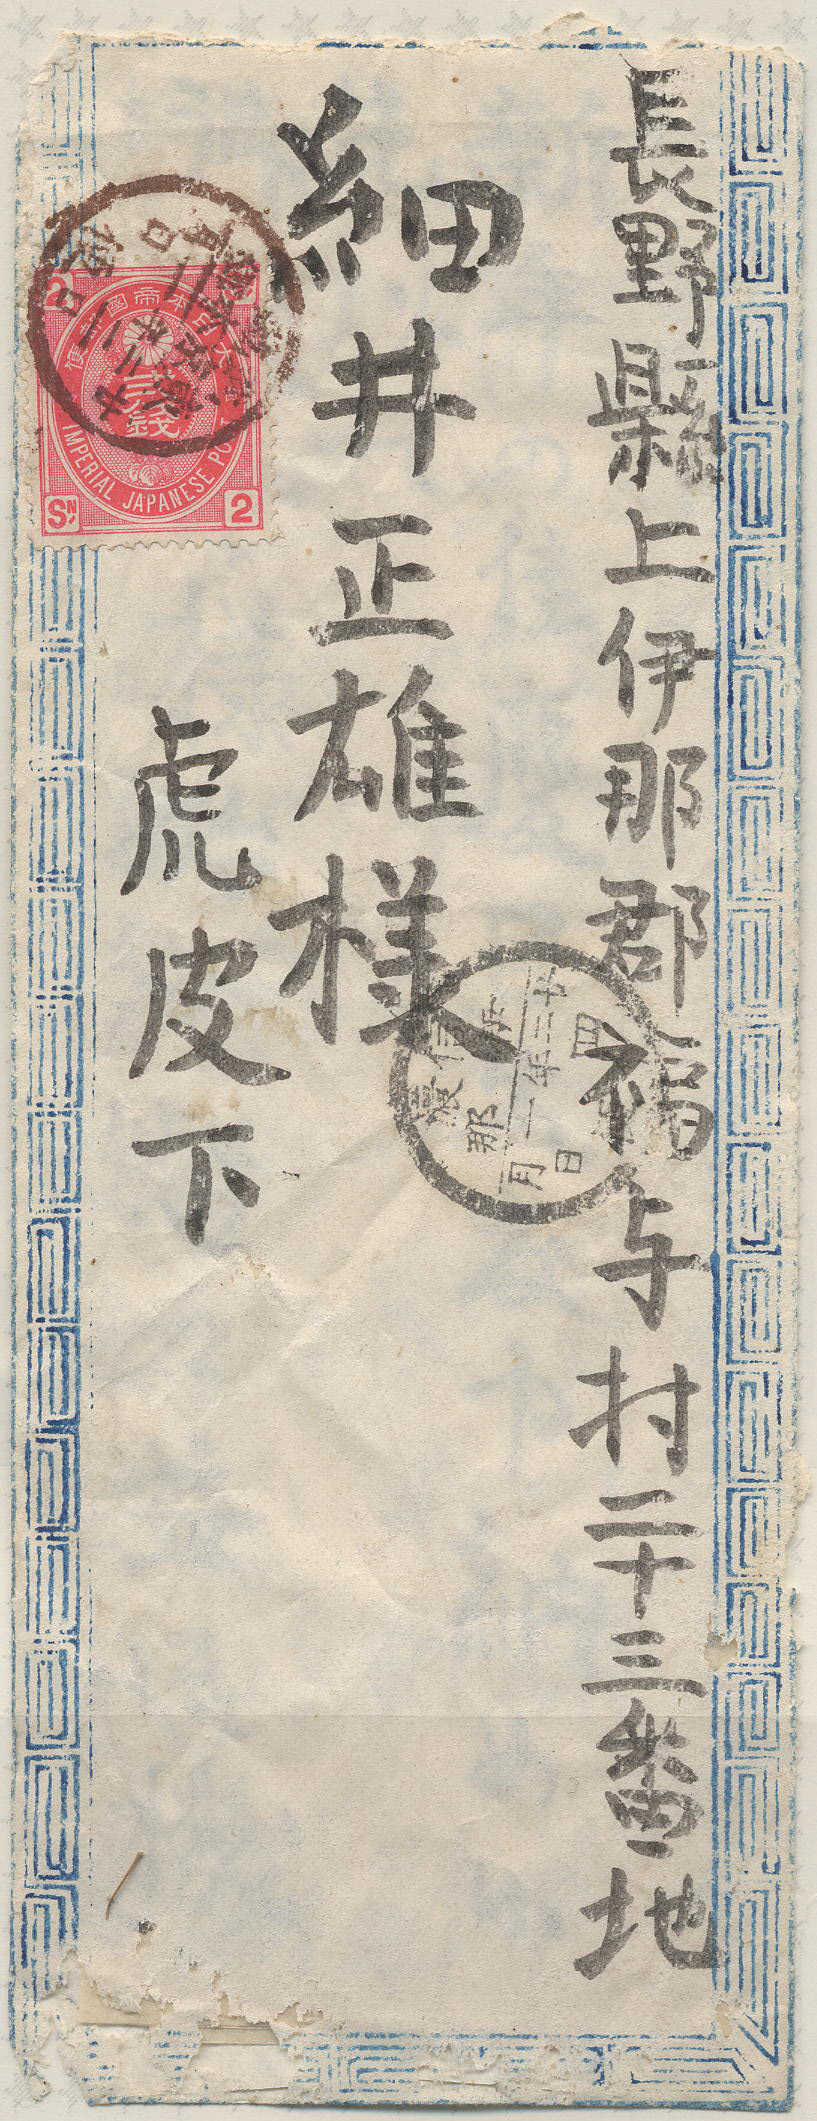 長野縣上伊那郡福与村二十三番地
細井正雄様
虎皮下
大日本帝國郵便
二銭
IMPERIAL JAPANESE POST
SN 2